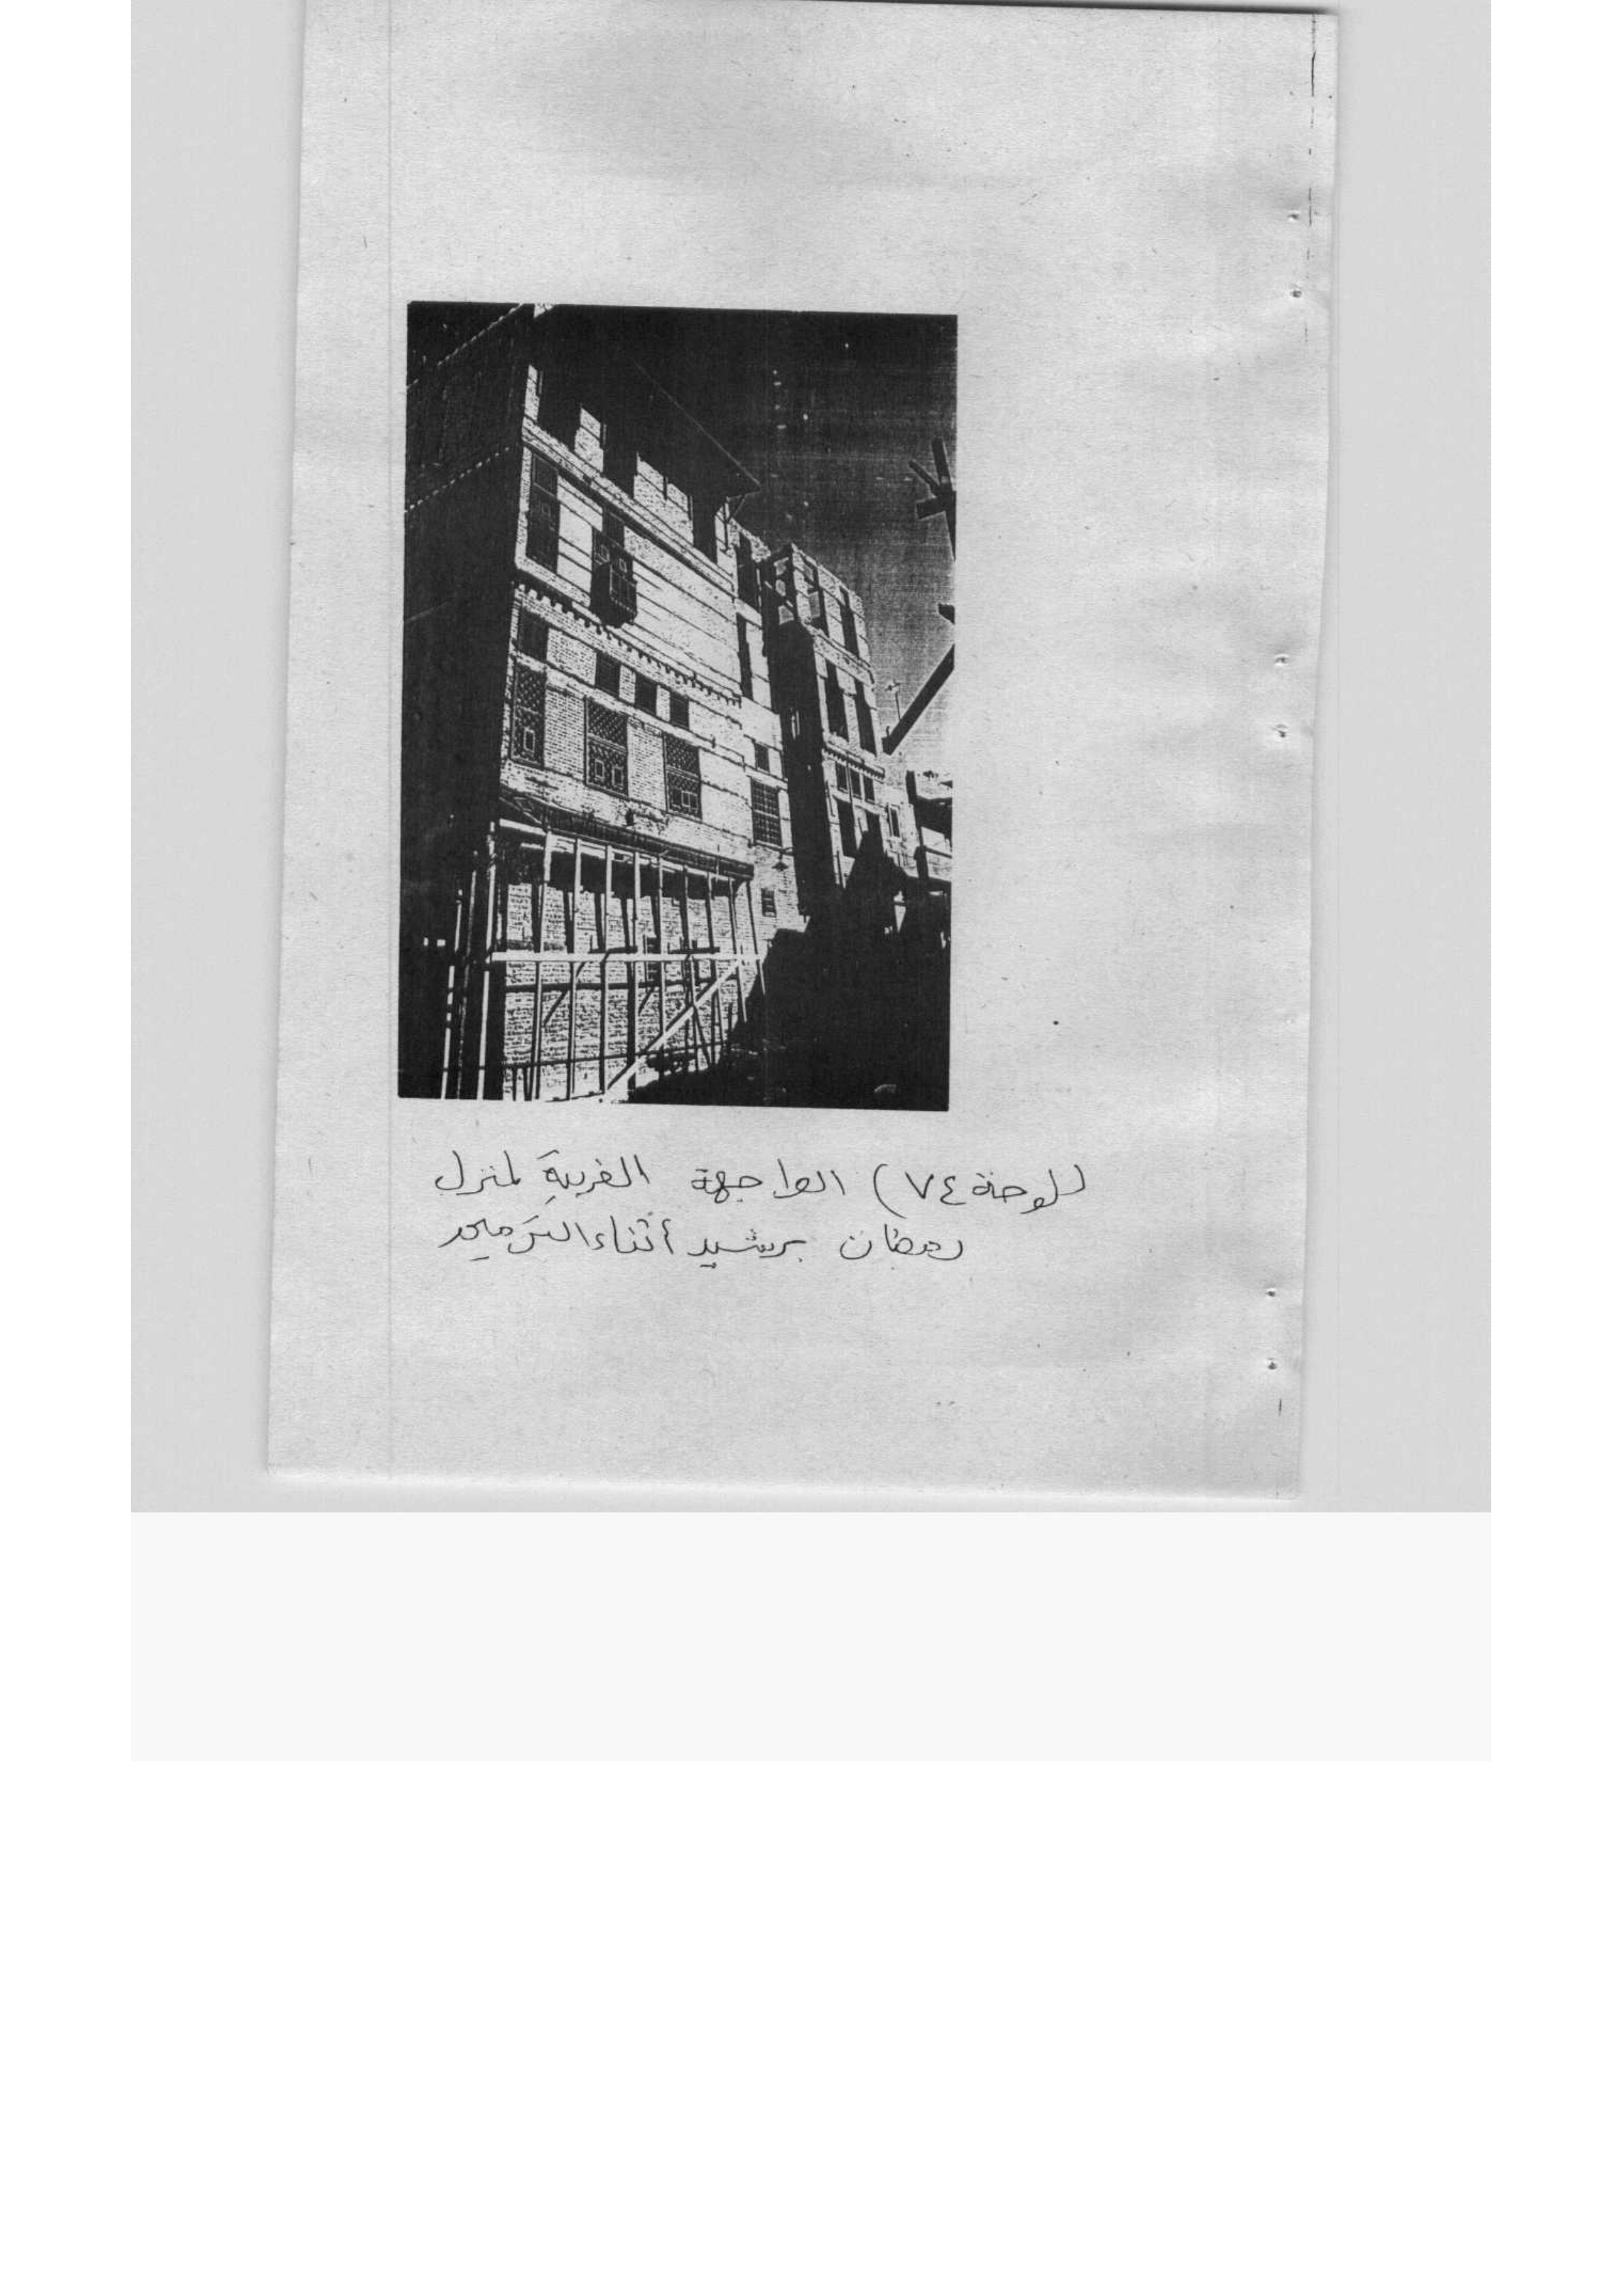 (لوحة ٧٤) الواجهة الغربية لمنزل
رمضان برشيد أثناء الترميم